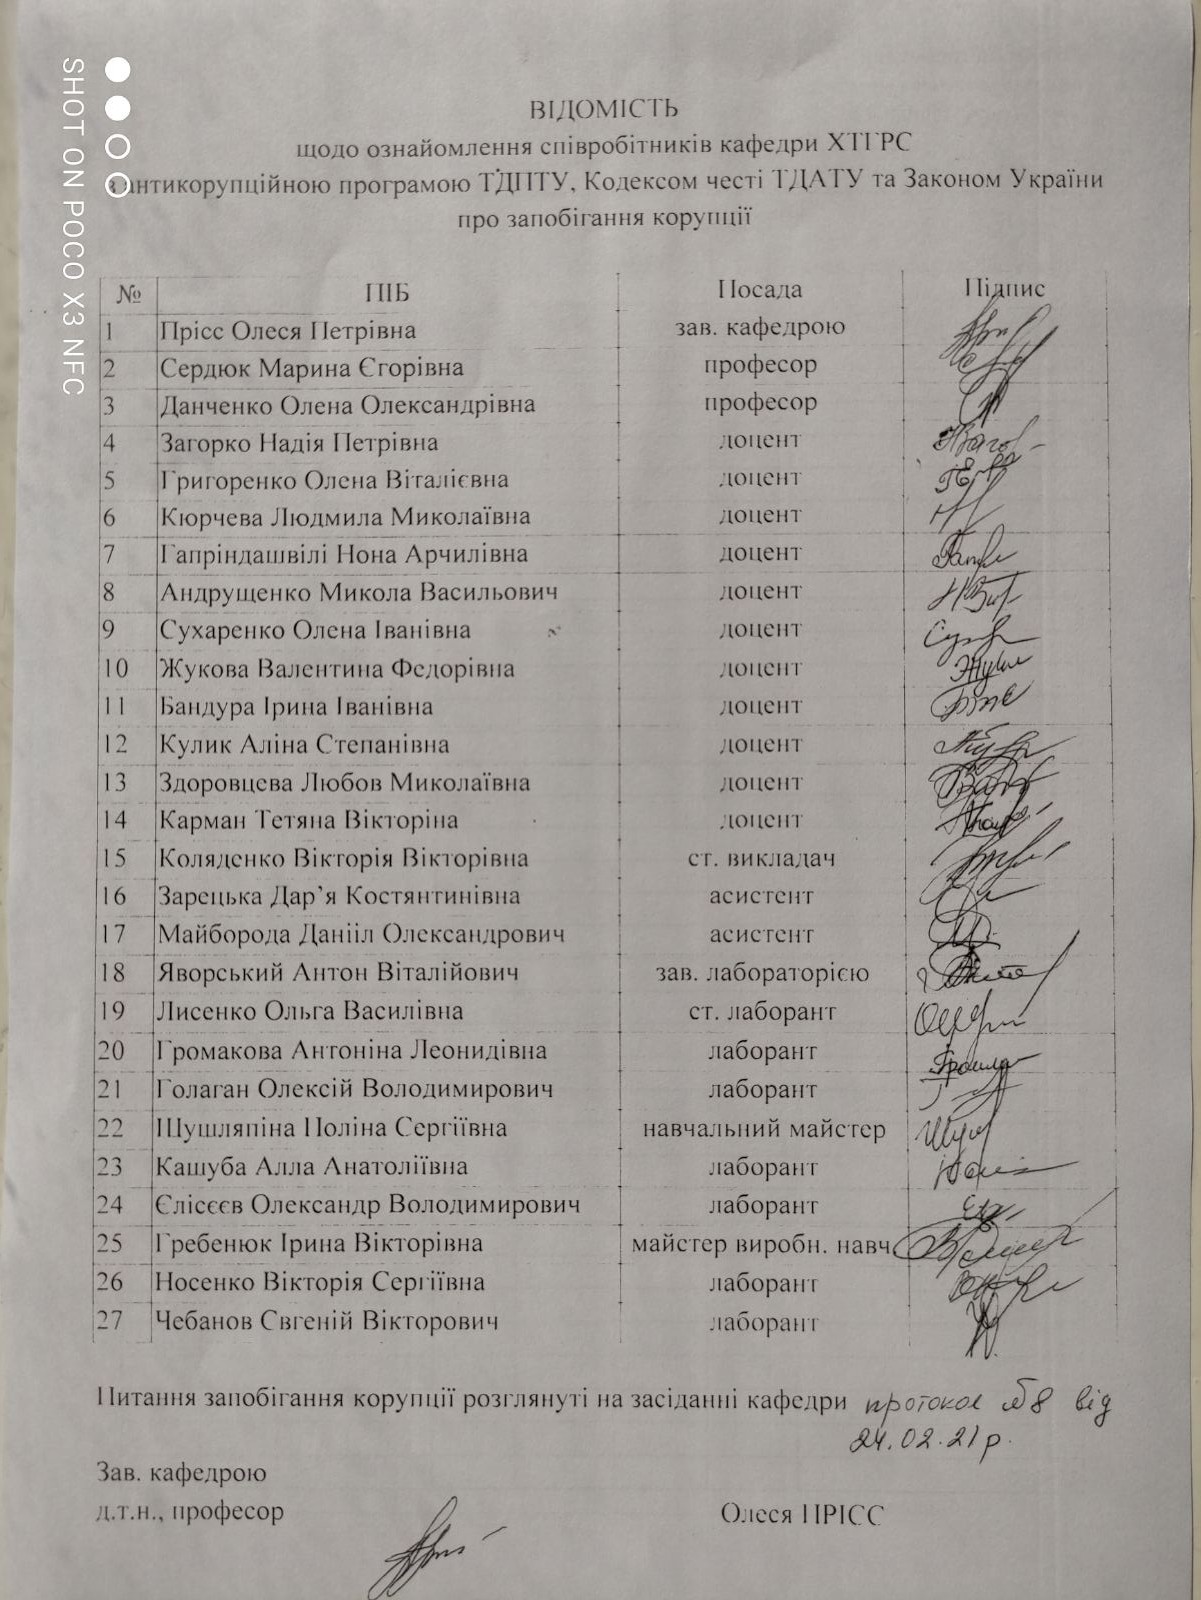 ВІДОМІСТЬ
щодо ознайомлення співробітників кафедри ХТГРС
з антикорупційною програмою ТДПТУ, Кодексом честі ТДАТУ та Законом України
про запобігання корупції
№ ПІБ Посада Підпис
1 Прісс Олеся Петрівна зав. кафедрою
2 Сердюк Марина Єгорівна професор
3 Данченко Олена Олександрівна професор
4 Загорко Надія Петрівна доцент
5 Григоренко Олена Віталієвна доцент
6 Кюрчева Людмила Миколаївна доцент
7 Гапріндашвілі Нона Арчилівна доцент
8 Андрущенко Микола Васильович доцент
9 Сухаренко Олена Іванівна доцент
10 Жукова Валентина Федорівна доцент
11 Бандура Ірина Іванівна доцент
12 Кулик Аліна Степанівна доцент
13 Здоровцева Любов Миколаївна доцент
14 Карман Тетяна Вікторіна доцент
15 Коляденко Вікторія Вікторівна ст. викладач
16 Зарецька Дар’я Костянтинівна асистент
17 Майборода Данііл Олександрович асистент
18 Яворський Антон Віталійович зав. лабораторією
19 Лисенко Ольга Василівна ст. лаборант
20 Громакова Антоніна Леонидівна лаборант
21 Голаган Олексій Володимирович лаборант
22 Шушляпіна Поліна Сергіївна навчальний майстер
23 Кашуба Алла Анатоліївна лаборант
24 Єлісєєв Олександр Володимирович лаборант
25 Гребенюк Ірина Вікторівна майстер виробн. навч
26 Носенко Вікторія Сергіївна лаборант
27 Чебанов Євгеній Вікторович лаборант
Питання запобігання корупції розглянуті на засіданні кафедри протокол №8 від
24.02.21р.
Зав. кафедрою
д.т.н., професор Олеся ПРІСС
SHOT ON POCO X3 NFC